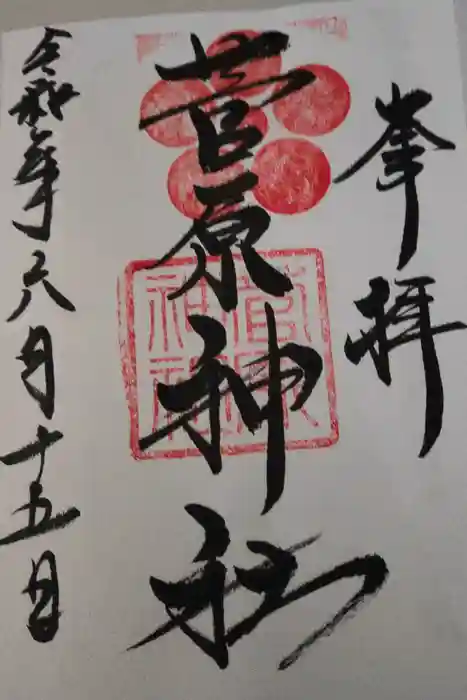 奉拝
菅原神社
菅原神社
令和年六月十五日